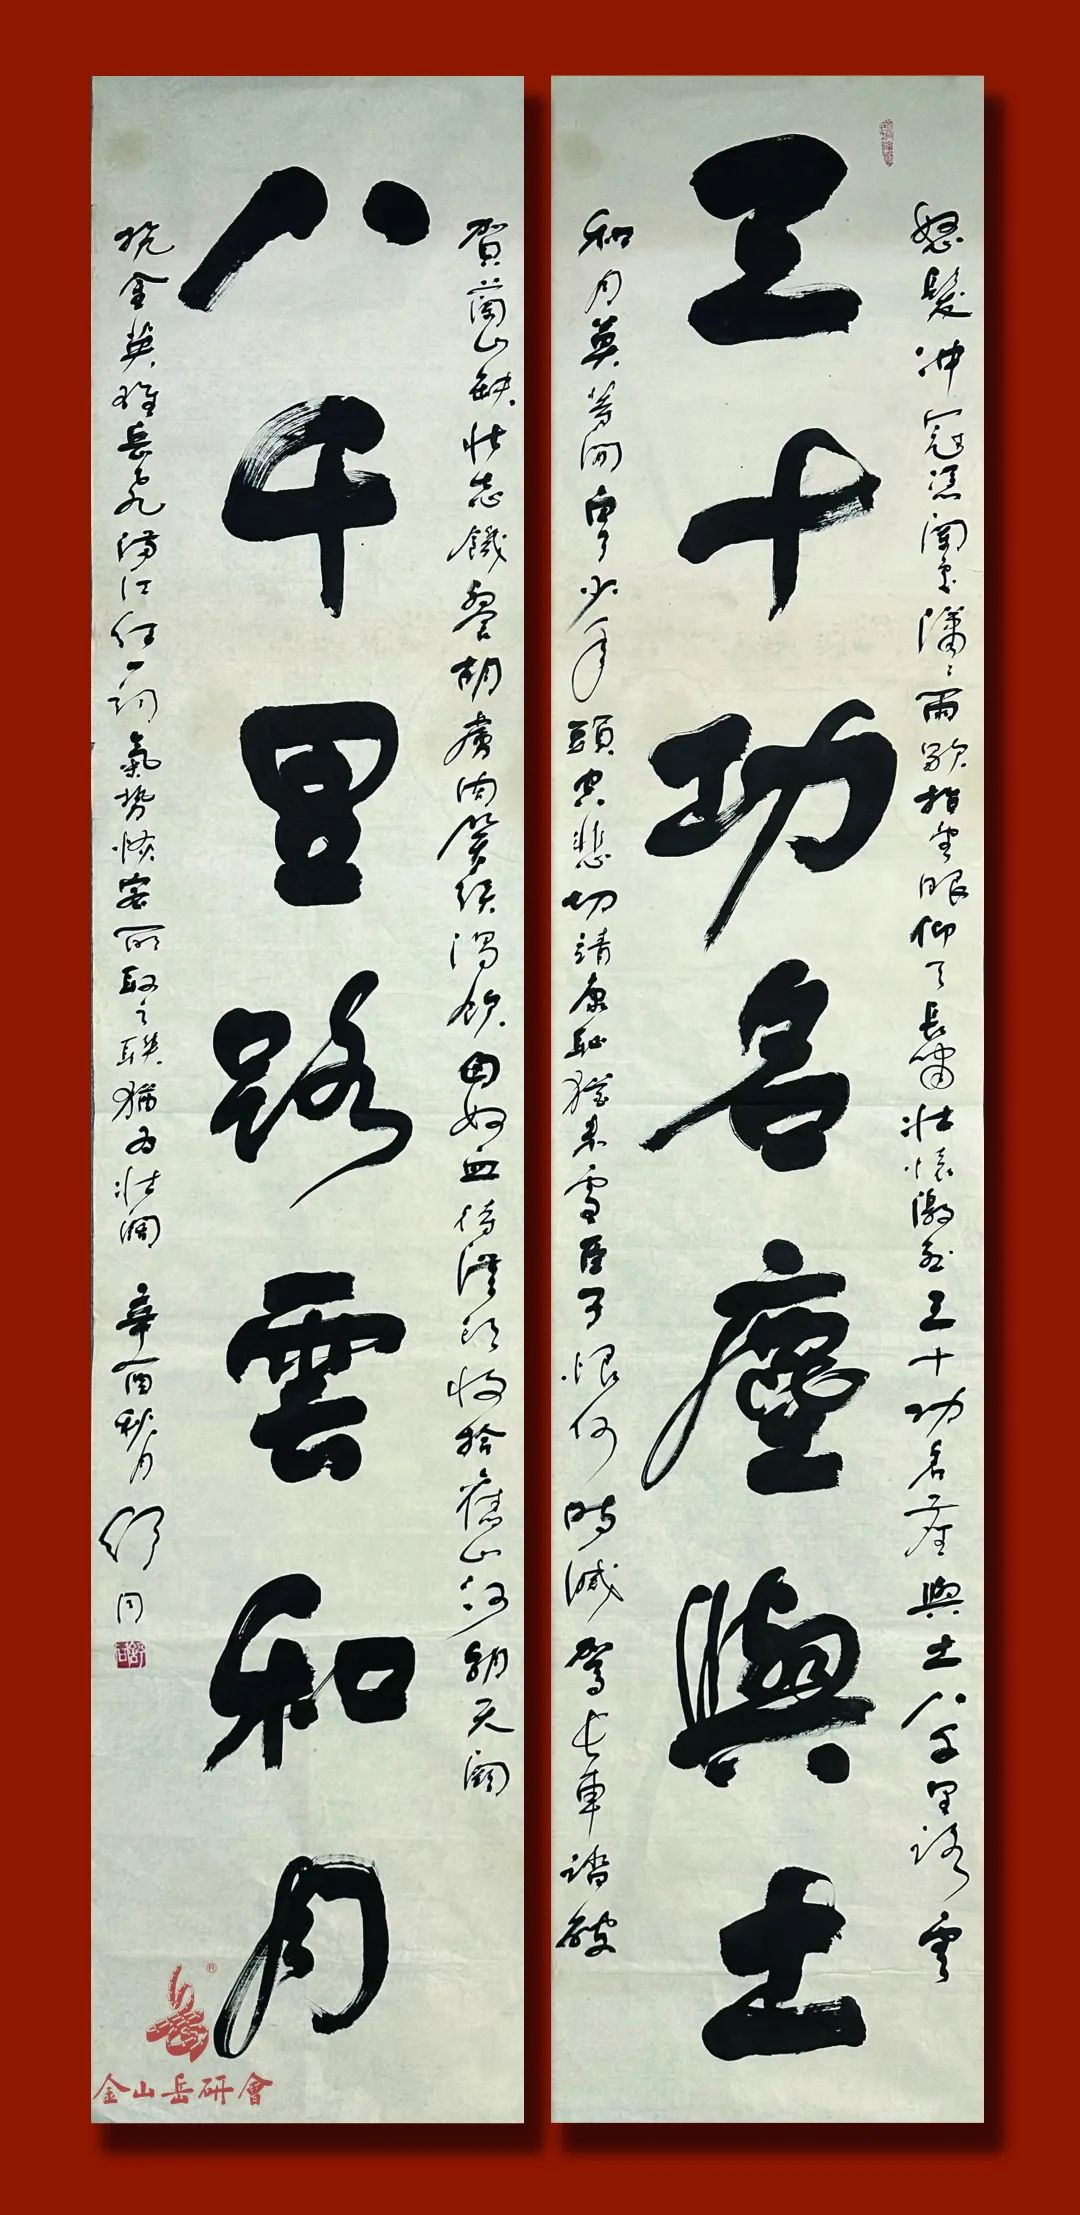 三十功名塵與土
怒髮冲冠憑闌處瀟瀟雨歇抬望眼仰天長嘯壯懷激烈三十功名塵與土八千里路雲
和月莫等閒白了少年頭空悲切靖康恥猶未雪臣子恨何時滅駕長車踏破
八千里路雲和月
賀蘭山缺壯志饑餐胡虜肉笑談渴飲匈奴血待從頭收拾舊山河朝天闕
抗金英雄岳飛滿江紅一詞氣勢恢宏所取之聯猶為壯闊 辛酉秋月 舒同
金山岳研會
®